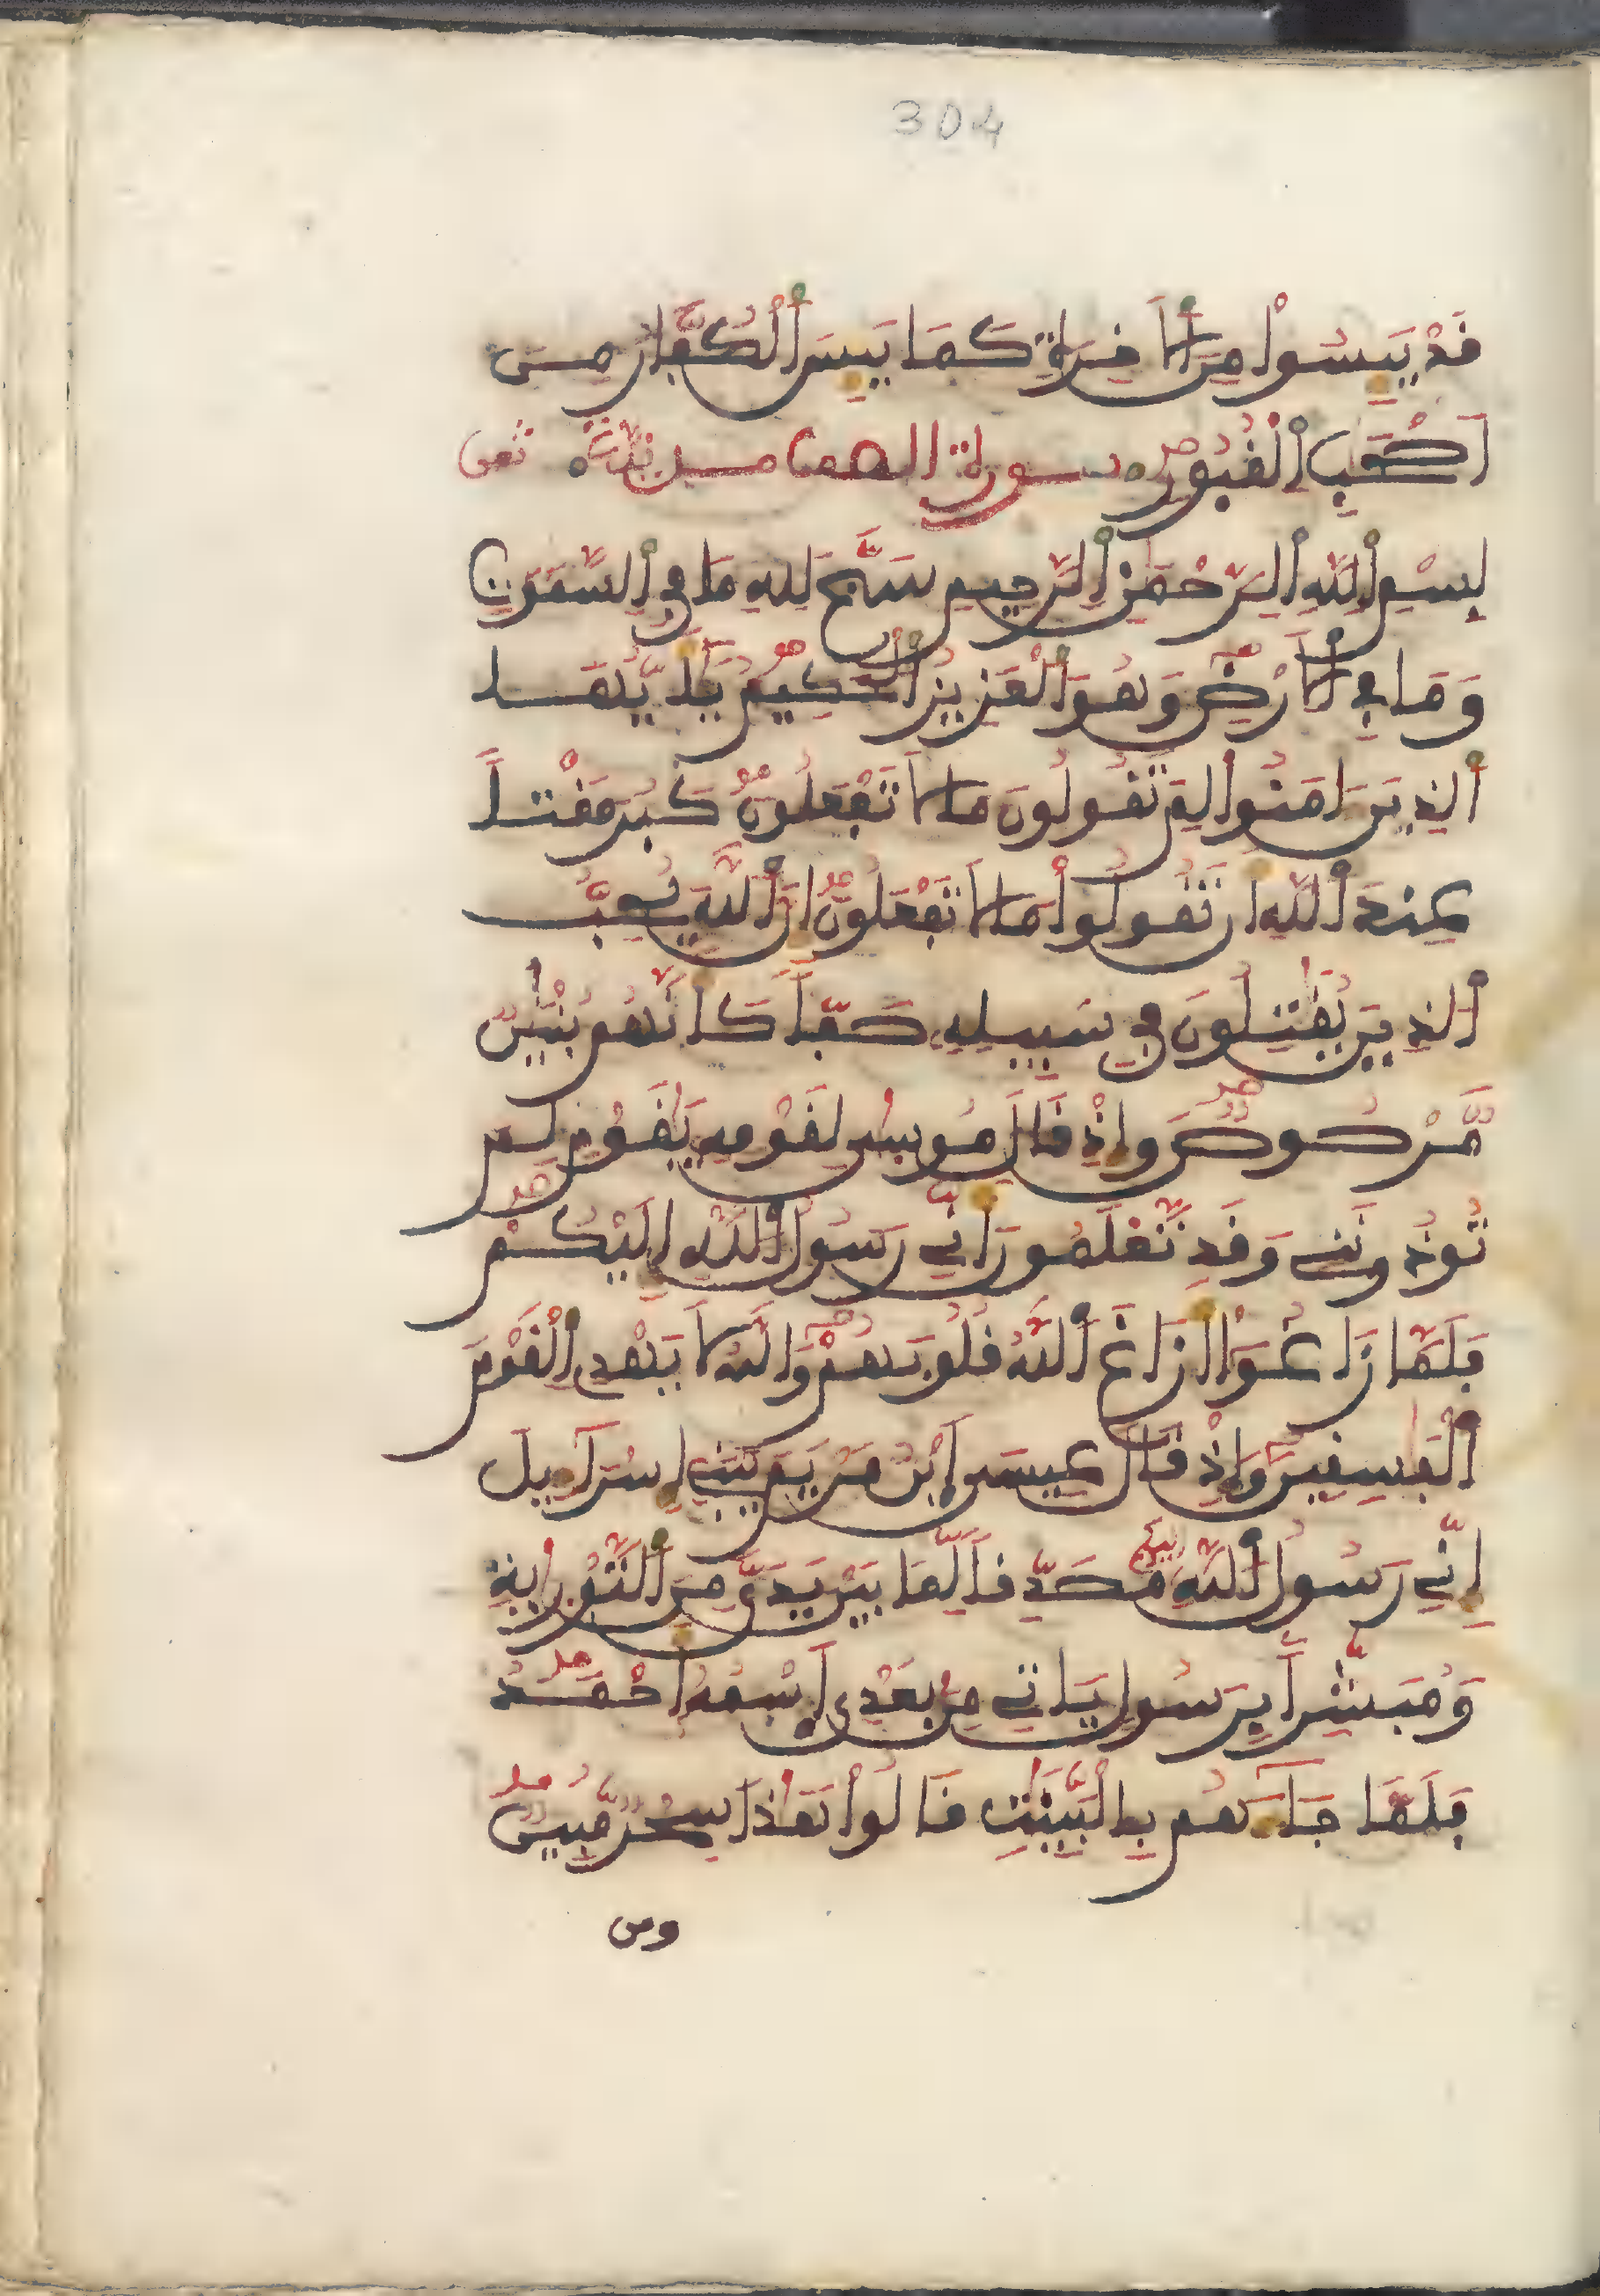 304
قَدْ يَيِسُواْ مِنَ اَ۬لَاخِرَةِ كَمَا يَيِسَ اَ۬لْكُفَّارُ مِنَ
اَصْحَٰبِ اِ۬لْقُبُورِ سورة الصف مدنية
بِسْمِ اِ۬للَّهِ اِ۬لرَّحْمَٰنِ اِ۬لرَّحِيمِ سَبَّحَ لِلهِ مَا فِے اِ۬لسَّمَٰوَٰتِ
وَمَا فِے اِ۬لَارْضِ وَهُوَ اَ۬لْعَزِيزُ اُ۬لْحَكِيمُ يَٰٓأَيُّهَا
اَ۬لذِينَ ءَامَنُواْ لِمَ تَقُولُونَ مَا لَا تَفْعَلُونَ كَبُرَ مَقْتاً
عِندَ اَ۬للَّهِ أَن تَقُولُواْ مَا لَا تَفْعَلُونَ إِنَّ اَ۬للَّهَ يُحِبُّ
اُ۬لذِينَ يُقَٰتِلُونَ فِے سَبِيلِهِۦ صَفّاً كَأَنَّهُم بُنْيَٰنٞ
مَّرْصُوصٞ وَإِذْ قَالَ مُوس۪يٰ لِقَوْمِهِۦ يَٰقَوْمِ لِمَ
تُوذُونَنِے وَقَد تَّعْلَمُونَ أَنِّے رَسُولُ اُ۬للَّهِ إِلَيْكُمْ
فَلَمَّا زَاغُوٓاْ أَزَاغَ اَ۬للَّهُ قُلُوبَهُمْ وَاللَّهُ لَا يَهْدِے اِ۬لْقَوْمَ
اَ۬لْفَٰسِقِينَ وَإِذْ قَالَ عِيسَي اَ۪بْنُ مَرْيَمَ يَٰبَنِے إِسْرَآءِيلَ
إِنِّے رَسُولُ اُ۬للَّهِ إِلَيْكُم مُّصَدِّقاً لِّمَا بَيْنَ يَدَيَّ مِنَ اَ۬لتَّوْر۪يٰةِ
وَمُبَشِّراً بِرَسُولٖ يَاتِے مِنۢ بَعْدِيَ اَ۪سْمُهُۥٓ أَحْمَدُ
فَلَمَّا جَآءَهُم بِالْبَيِّنَٰتِ قَالُواْ هَٰذَا سِحْرٞ مُّبِينٞ
ومن